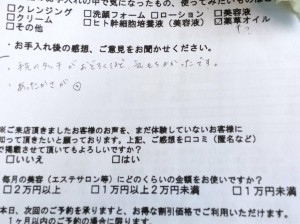 お手入れの中で気になったもの、使ってみたいもの
□クレンジング □洗顔フォーム □ローション □美容液
□クリーム □ヒト幹細胞培養液(美容液) □薬草オイル
□その他
・お手入れ後の感想、ご意見をお聞かせください。
気もちよかったです。
・あったかさが◎
※ご来店頂きましたお客様のお声を、まだ体験していないお客様に
知って頂きたいと願っております。上記、ご感想を口コミ(匿名など)
で掲載させて頂いてもよろしいですか?
□いいえ □はい
毎月の美容(エステサロン等)にどのくらいの金額をお使いですか?
□2万円以上 □1万円以上2万円未満 □1万円未満
本日、次回のご予約を承りますと、お得な割引価格でご利用いただけます。
1ヶ月以内のご予約の場合に限ります。